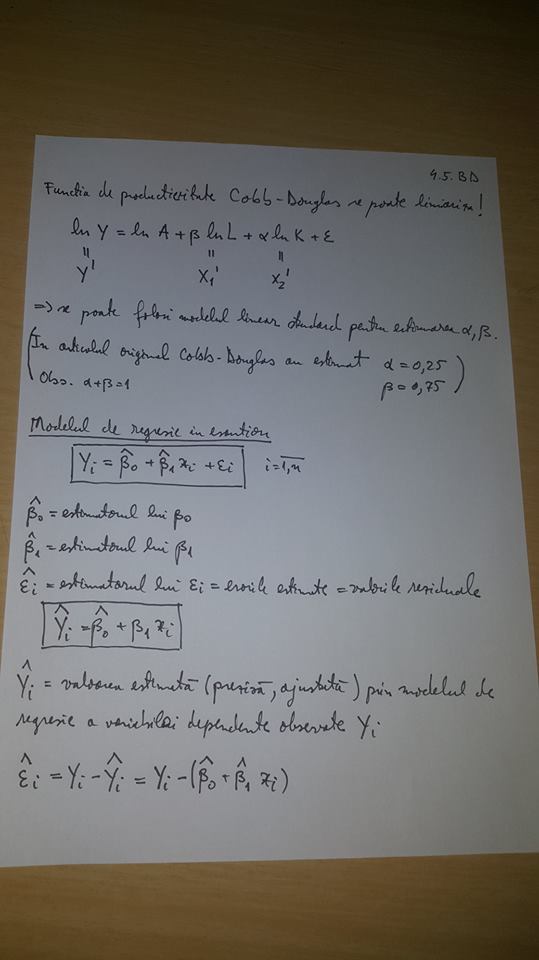 4.5. BD
Functia de productivitate Cobb-Douglas se poate liniariza!
ln Y = ln A + β ln L + α ln K + ε
" " "
Y' X₁' X₂'
=> se poate folosi modelul linear standard pentru estimarea α, β.
(In articolul original Cobb-Douglas au estimat α = 0,25
Obs. α+β=1 β = 0,75 )
Modelul de regresie in esantion
Yi = β̂₀ + β̂₁ xi + εi i = 1,n
β̂₀ = estimatorul lui β₀
β̂₁ = estimatorul lui β₁
ε̂i = estimatorul lui εi = erorile estimate = valorile reziduale
Ŷi = β̂₀ + β₁ xi
Ŷi = valoarea estimată (previză, ajustată) prin modelul de
regresie a variabilei dependente observate Yi
ε̂i = Yi - Ŷi = Yi - (β̂₀ + β̂₁ xi)